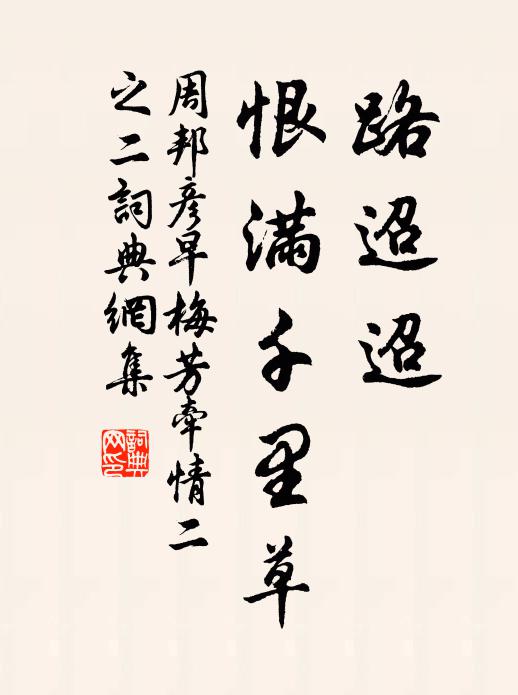 路迢迢
恨滿千里草
周邦彥早梅芳牽情二
之二詞典網集
詞典
网印